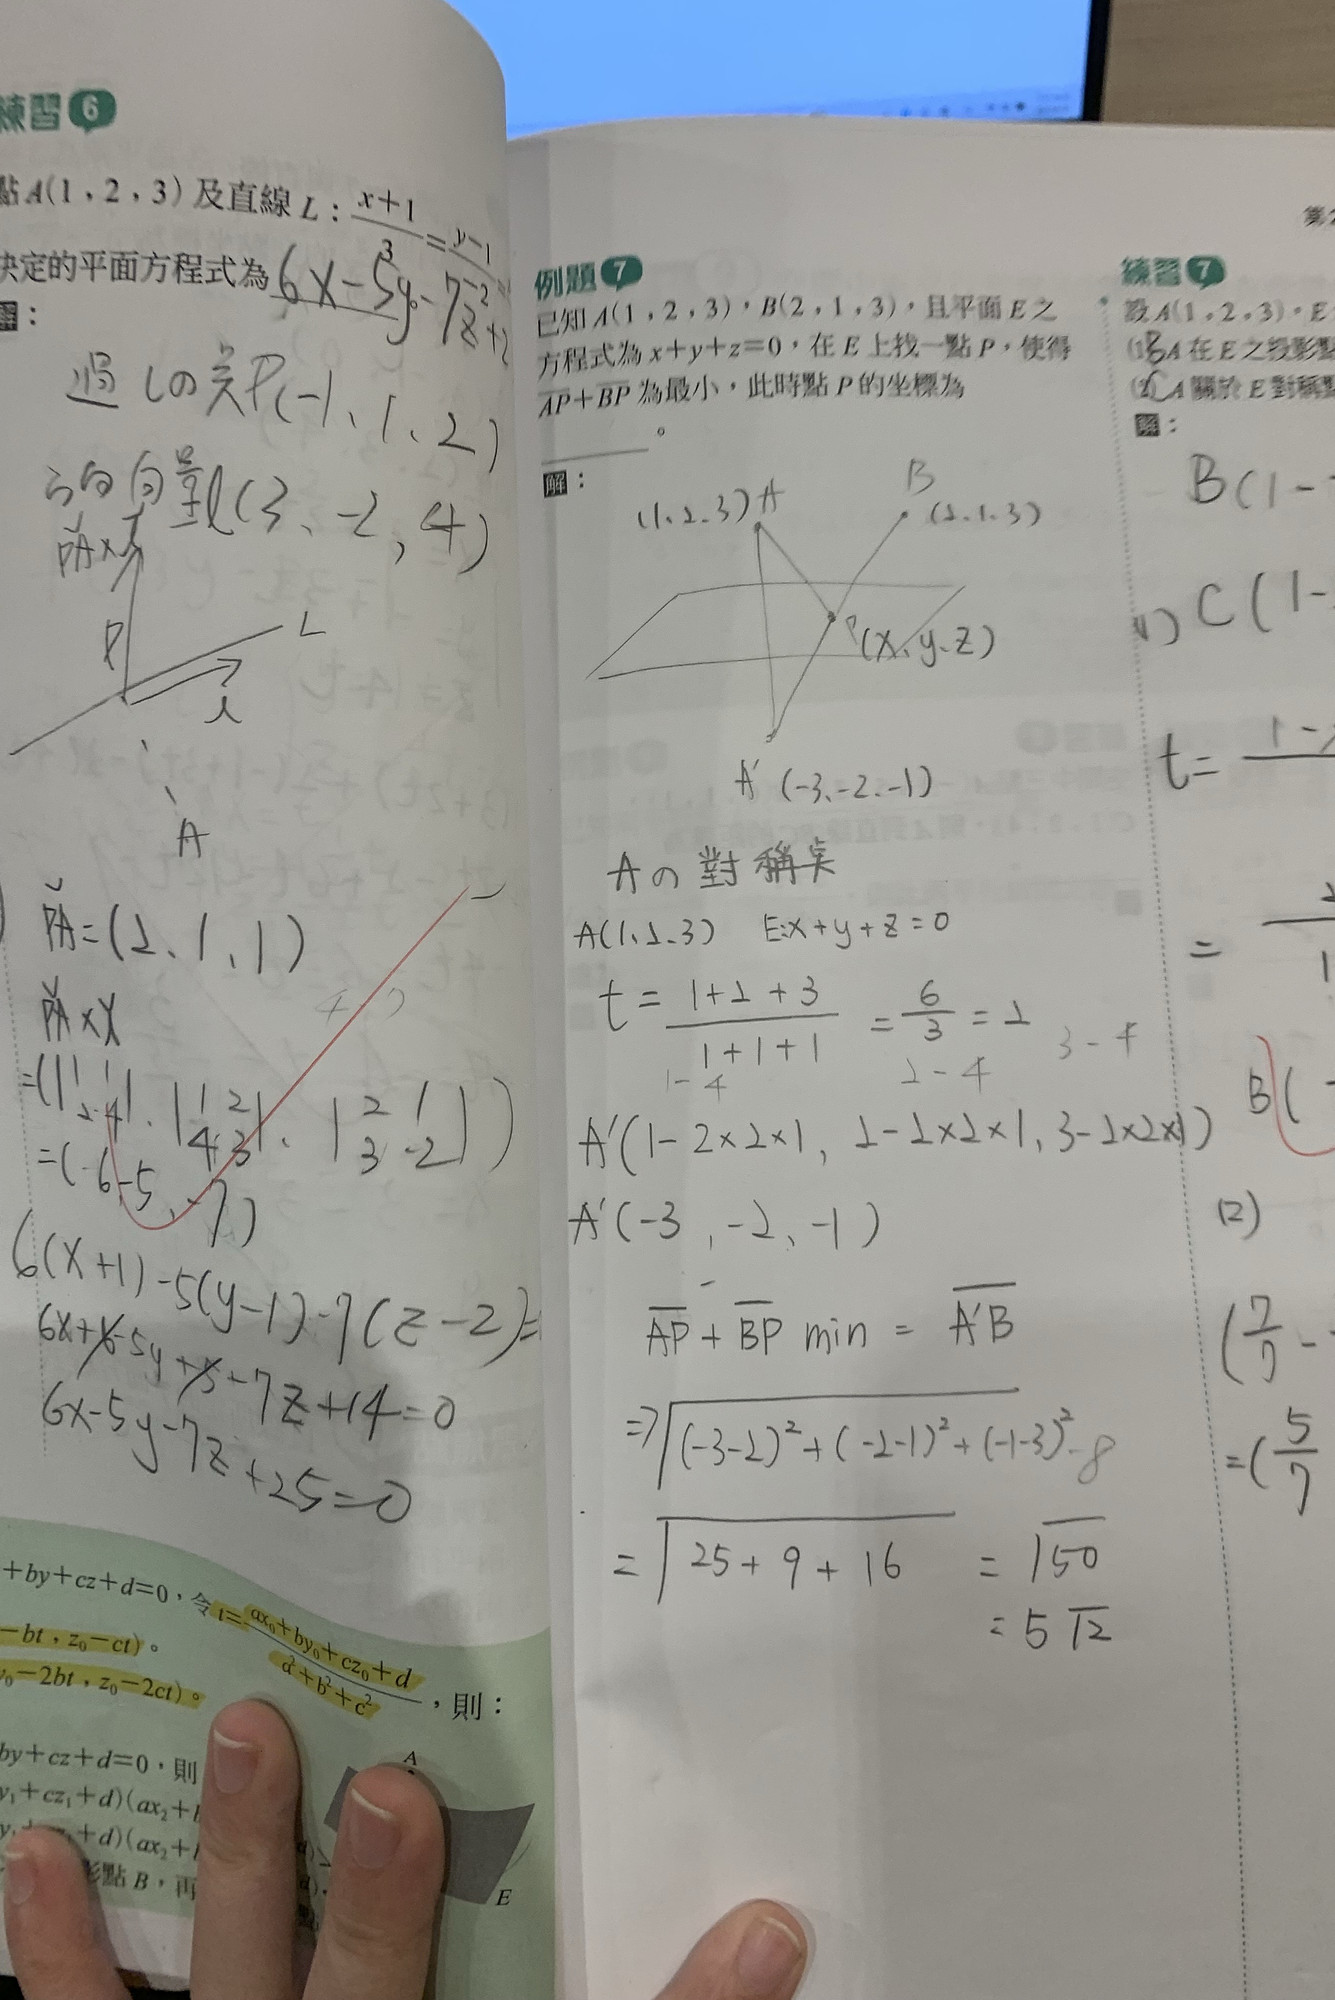 練習 6
點A(1，2，3)及直線L：x+1/3=y-1/-2
決定的平面方程式為6x-5y-7z+2
過Lの点P(-1、1、2)
方向量l(3、-2,4)
PA×l
P
L
l
A
PA=(2、1、1)
PA×l
=(|1 1/-2 4|、|1 2/4 3|、|2 1/3 -2|)
=(6,-5,-7)
6(x+1)-5(y-1)-7(z-2)=
6x+6-5y+5-7z+14=0
6x-5y-7z+25=0
+by+cz+d=0，令t=ax₀+by₀+cz₀+d/a²+b²+c²，則：
-bt，z₀-ct)。
y₀-2bt，z₀-2ct)。
by+cz+d=0，則
y₁+cz₁+d)(ax₂+
+d)(ax₂+
影點B，再
A
E
第2
例題 7
已知A(1，2，3)，B(2，1，3)，且平面E之
方程式為x+y+z=0，在E上找一點P，使得
AP+BP為最小，此時點P的坐標為
。
解：
(1、2、3)A
B
(2、1、3)
P(x、y、z)
A'(-3、-2、-1)
Aの對稱点
A(1、2、3) E:x+y+z=0
t=1+2+3/1+1+1=6/3=2
1-4 2-4 3-4
A'(1-2×2×1, 2-2×2×1, 3-2×2×1)
A'(-3,-2、-1)
AP+BP min = A'B
⇒√(-3-2)²+(-2-1)²+(-1-3)²
=√25+9+16 =√50
=5√2
練習 7
設A(1，2，3)，E
(1)A在E之投影點
(2)A關於E對稱點
解：
B(1-
(1) C(1-
t=
=
B(
(2)
(7/7-
=(5/7